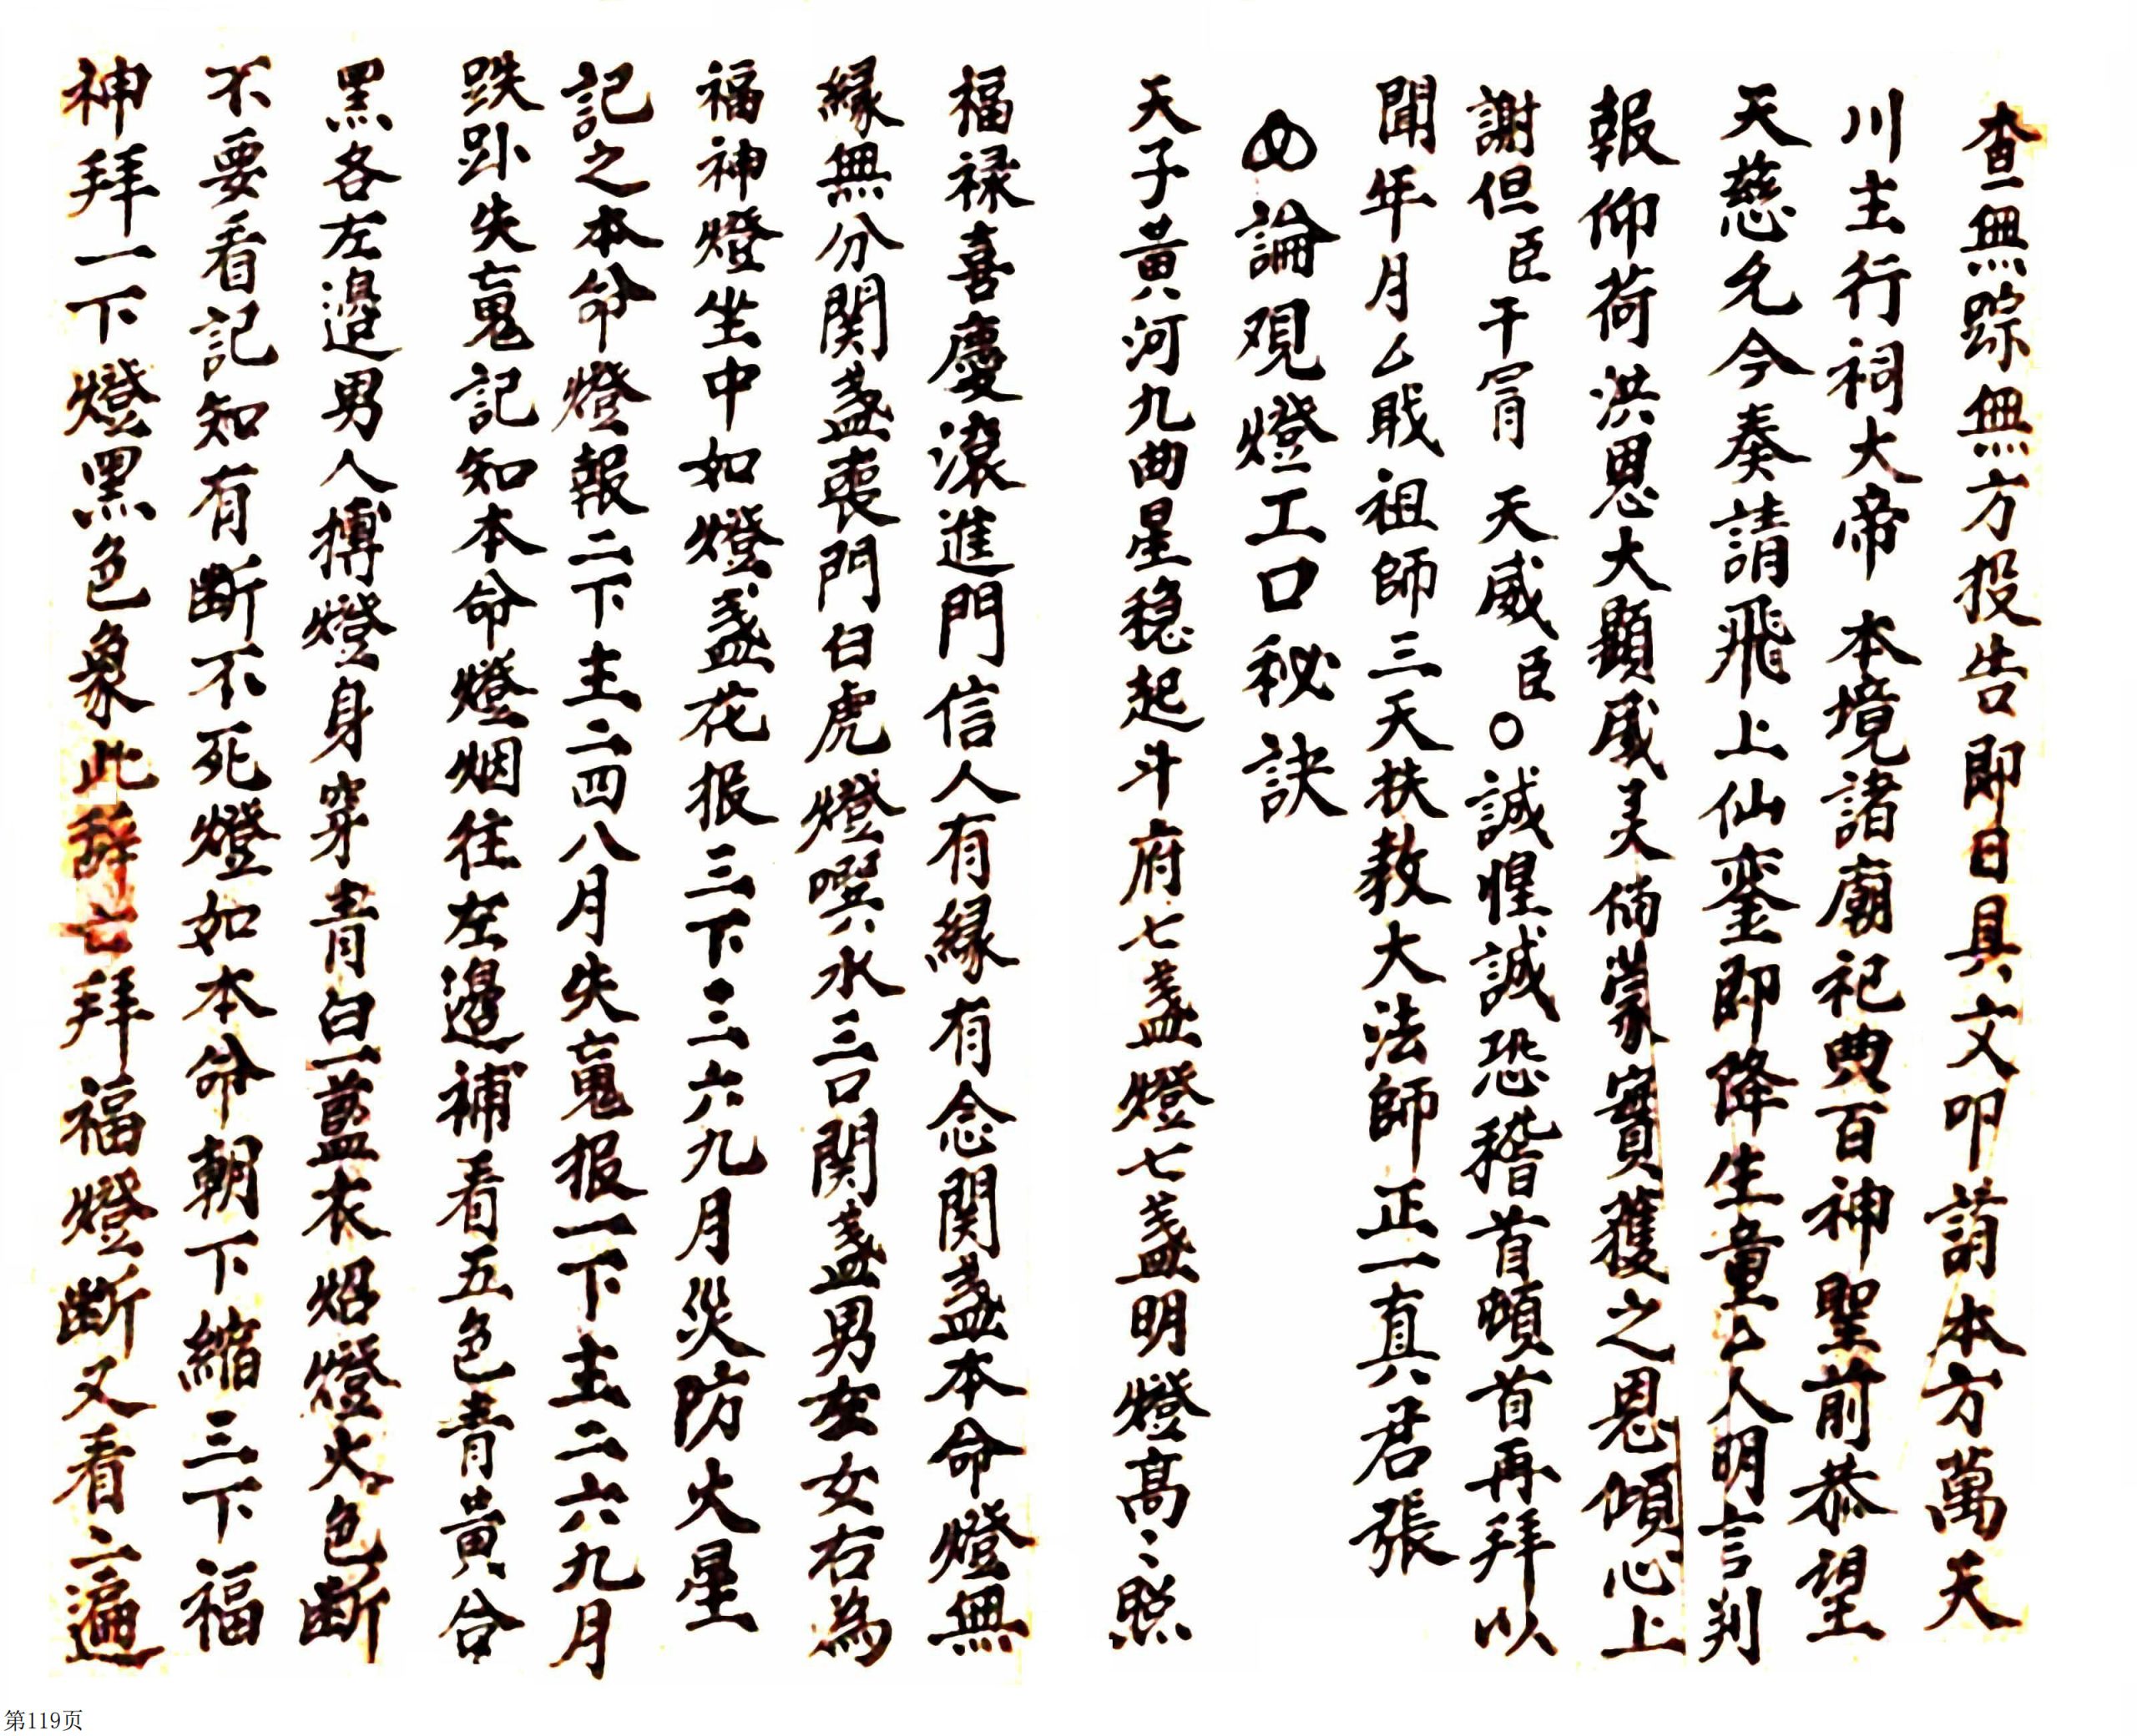 查無踪無方投告即日具文叩請本方萬天
川主行祠大帝 本境諸廟祀典百神聖前恭望
天慈允今奏請飛上仙鑾即降生童厶人明言判
報仰荷洪恩大顯威灵倘蒙實獲之恩傾心上
謝但臣干冐 天威臣〇誠惶誠恐稽首頓首再拜以
聞年月厶戝祖師三天扶教大法師正一真君張
論观燈工口秘訣
天子黃河九曲星穏起斗府七盞燈七盞明燈高〻照
福禄喜慶滾進門信人有緣有念関盞本命燈無
緣無分関盞喪門白虎燈噀水三口関盞男左女右為
福神燈坐中如燈盞花报三下主二六九月災防火星
記之本命燈報二下主二四八月失魂报一下主二六九月
跌卧失魂記知本命燈烟往左邊補看五色青黃合
黑各左邊男人搏燈身穿青白藍衣炤燈火色断
不要看記知有断不死燈如本命朝下縮三下福
神拜一下燈黑色象此辞亡拜福燈断又看二遍
第119页